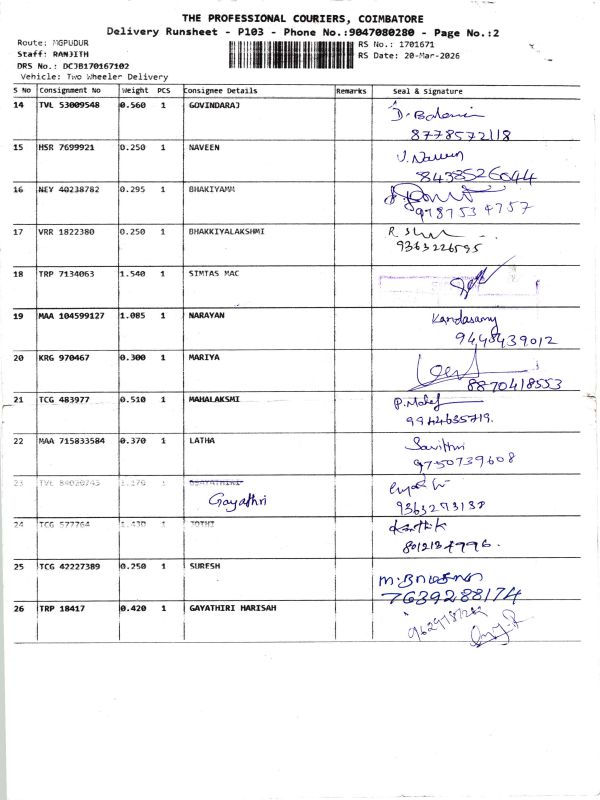 THE PROFESSIONAL COURIERS, COIMBATORE
Delivery Runsheet - P103 - Phone No.:9047080280 - Page No.:2
Route: MGPUDUR
Staff: RANJITH
DRS No.: DCJB170167102
Vehicle: Two Wheeler Delivery
RS No.: 1701671
RS Date: 20-Mar-2026
S No Consignment No Weight PCS Consignee Details Remarks Seal & Signature
14 TVL 53009548 0.560 1 GOVINDARAJ
8778572118
15 HSR 7699921 0.250 1 NAVEEN V. Naveen
8438526044
16 NEY 40238782 0.295 1 BHAKIYAMM
9787534757
17 VRR 1822380 0.250 1 BHAKKIYALAKSHMI
9363226595
18 TRP 7134063 1.540 1 SIMTAS MAC
19 MAA 104599127 1.085 1 NARAYAN Kandasamy
9448439012
20 KRG 970467 0.300 1 MARIYA
8870418553
21 TCG 483977 0.510 1 MAHALAKSMI
9944635719.
22 MAA 715833584 0.370 1 LATHA Savithri
9750739608
23 1
Gayathri
24 TCG 577764 1.430 1 JOTHI Karthik
8012134996.
25 TCG 42227389 0.250 1 SURESH
7639288174
26 TRP 18417 0.420 1 GAYATHIRI HARISAH